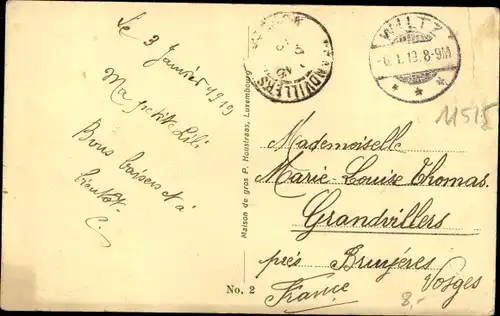 Le 3 Janvier 1919
Ma petite Lili
Bons baisers et à
bientôt.
C.
Maison de gros P. Houstraas, Luxembourg
No. 2
GRANDVILLERS
WILTZ
-6.1.19.8-9M
11515
Mademoiselle
Marie-Louise Thomas.
Grandvillers
près Bruyéres
Vosges
France
8,-